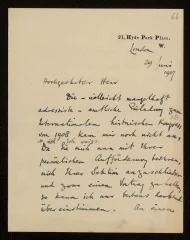 66
21, Hyde Park Place,
W.
London
29 Juni
1907
Hochgeehrter Herr
Die – vielleicht mangelhaft
adressirte – amtliche Einladung zum
Internationalen historischen Kongress
von 1908 kam mir noch nicht zu,
Da Sie mich nun mit Ihrer
persönlichen Aufforderung beehren,
mich Ihrer Sektion anzuschliessen
und zwar einen Vortrag zu halten,
so kann ich nur bestens dankend
übereinstimmen. An einen